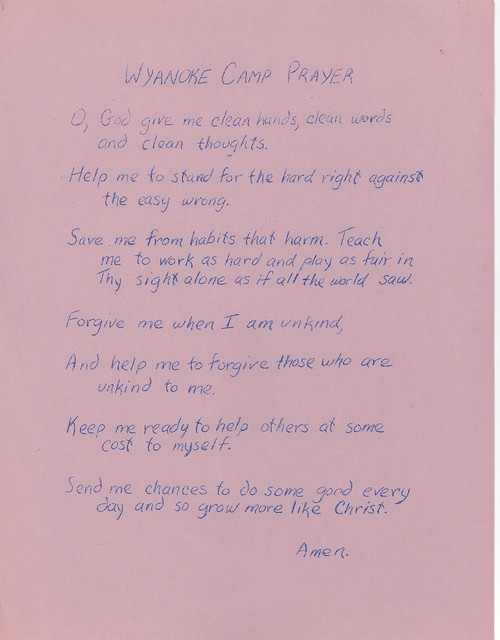 WYANOKE CAMP PRAYER
O, God give me clean hands, clean words
and clean thoughts.
Help me to stand for the hard right against
the easy wrong.
Save me from habits that harm. Teach
me to work as hard and play as fair in
Thy sight alone as if all the world saw.
Forgive me when I am unkind,
And help me to forgive those who are
unkind to me.
Keep me ready to help others at some
cost to myself.
Send me chances to do some good every
day and so grow more like Christ.
Amen.